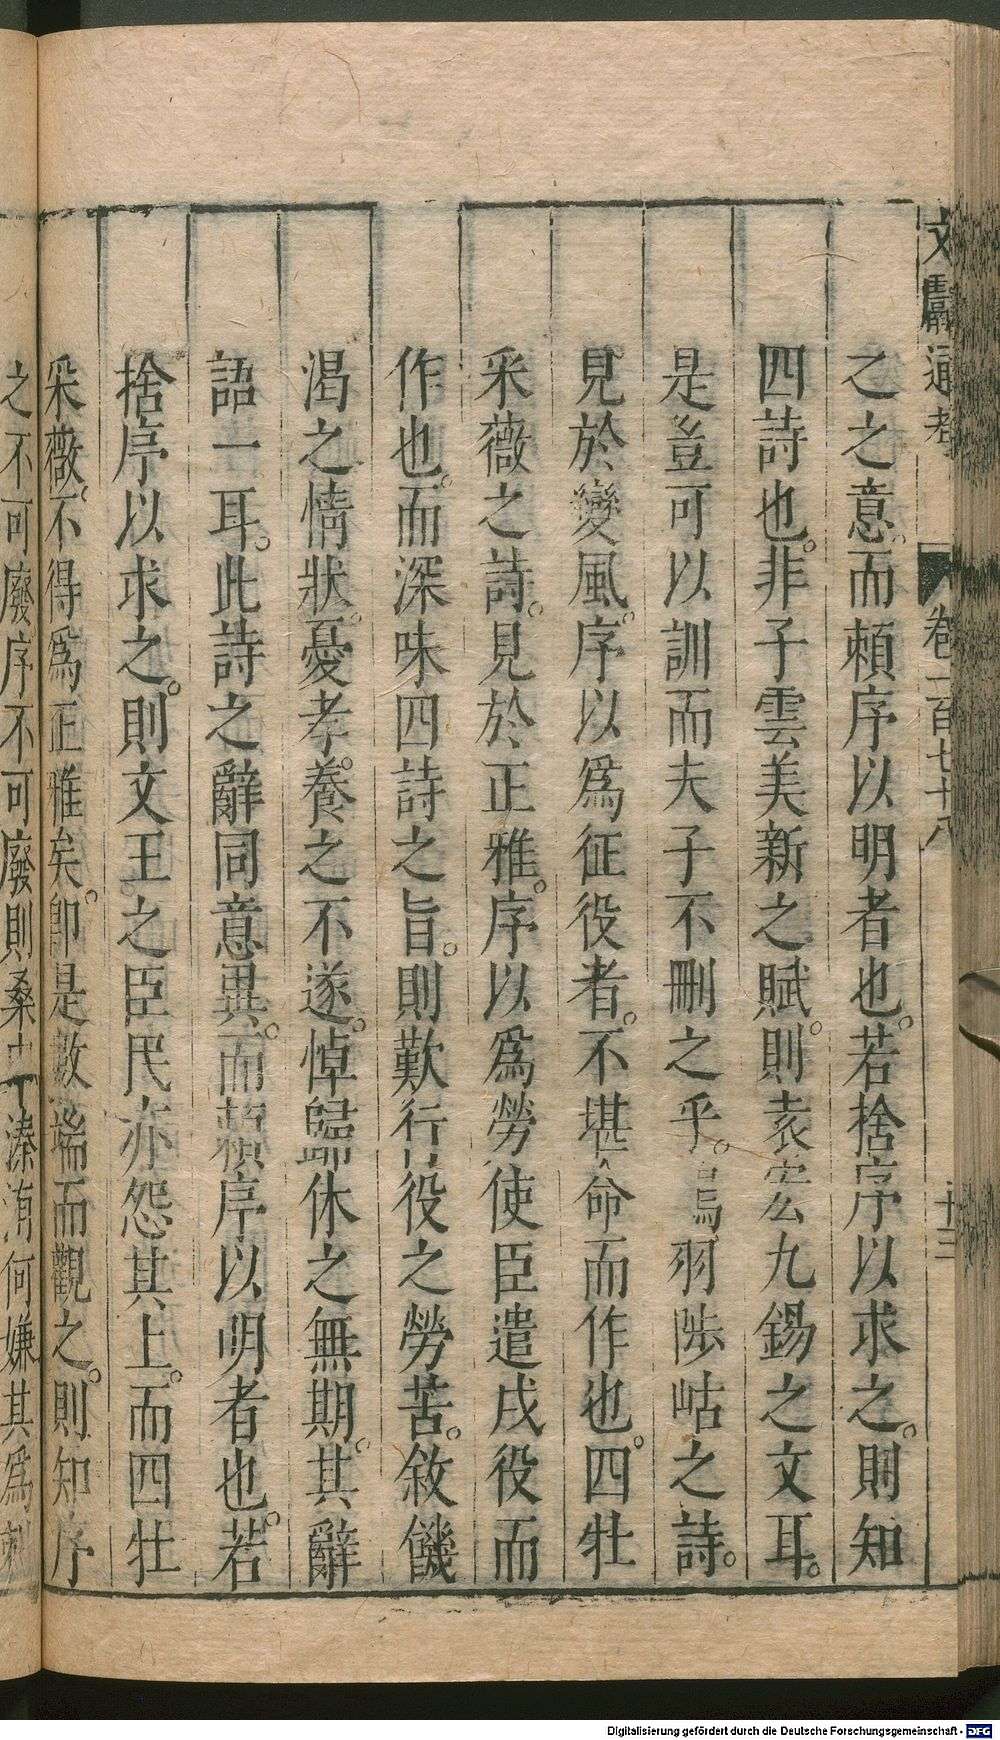 文獻通考 卷一百七十八 十三
之之意。而賴序以明者也。若捨序以求之。則知
四詩也。非子雲美新之賦。則袁宏九錫之文耳。
是豈可以訓而夫子不刪之乎。鴇羽陟岵之詩。
見於變風。序以爲征役者。不堪命而作也。四牡
采薇之詩。見於正雅。序以爲勞使臣遣戍役而
作也。而深味四詩之旨。則歎行役之勞苦。敘饑
渴之情狀。憂孝養之不遂。悼歸休之無期。其辭
語一耳。此詩之辭同意異。而賴序以明者也。若
捨序以求之。則文王之臣民亦怨其上。而四牡
采薇。不得爲正雅矣。卽是數端而觀之。則知序
之不可廢序不可廢則桑中溱洧何嫌其爲刺
Digitalisierung gefördert durch die Deutsche Forschungsgemeinschaft - DFG